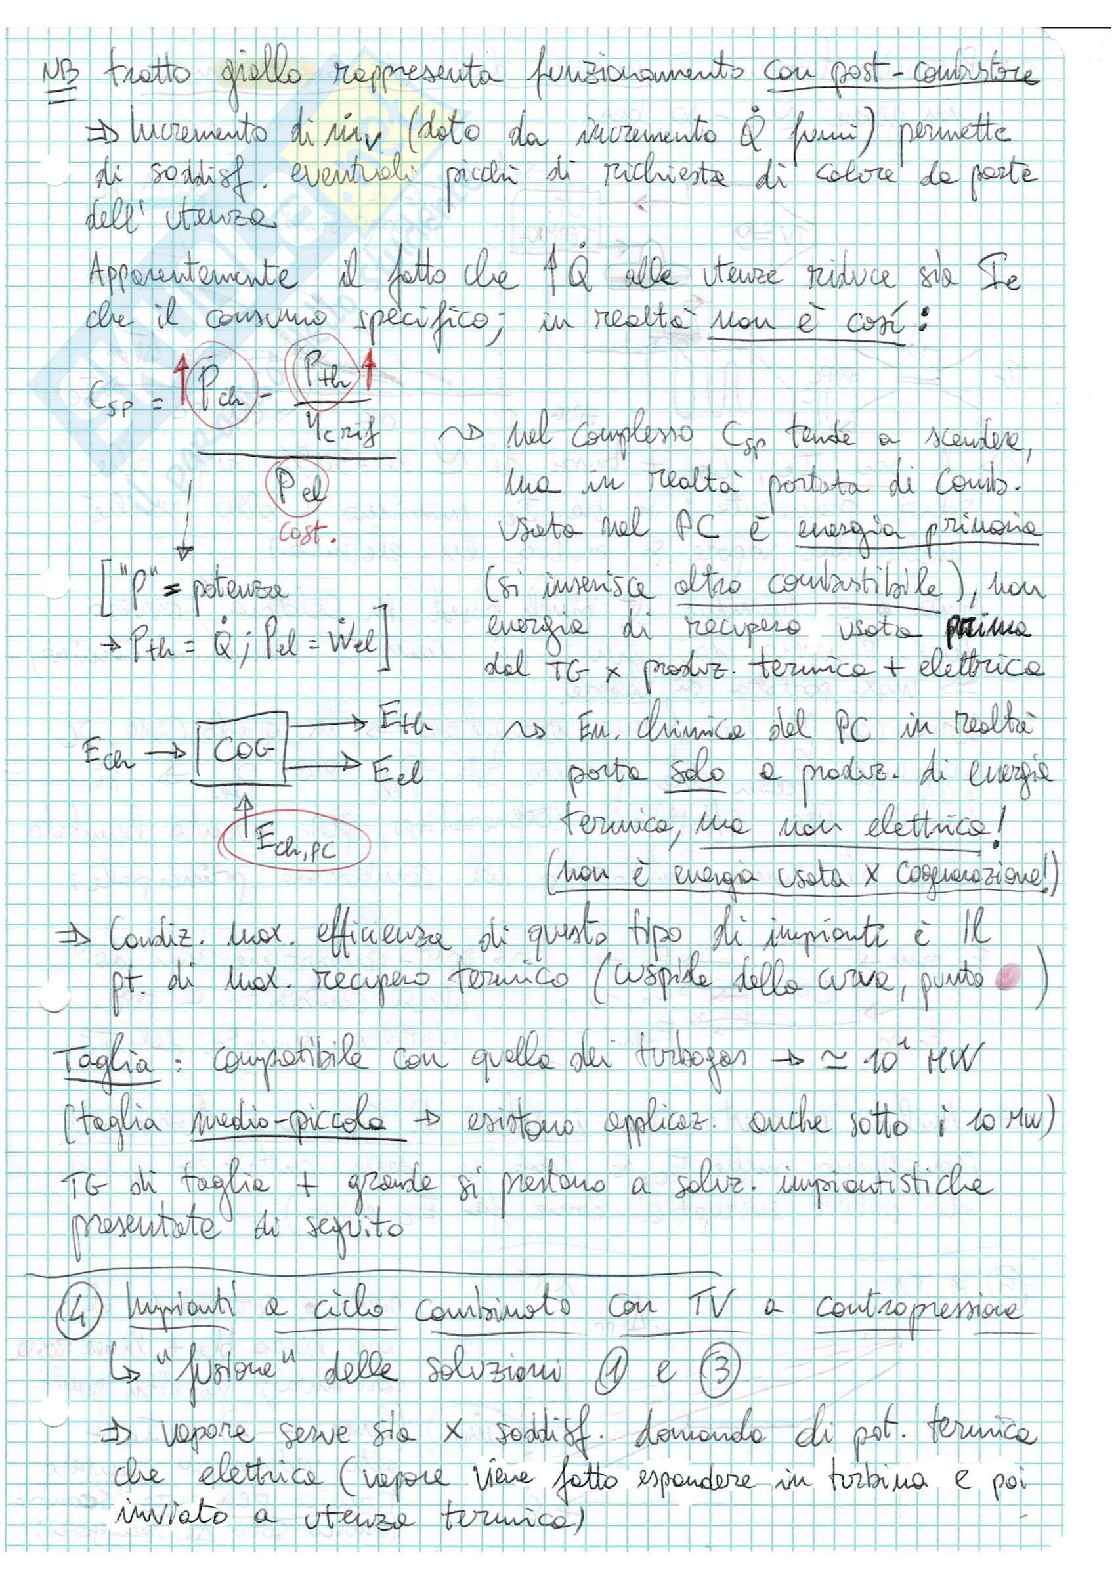 NB tratto giallo rappresenta funzionamento con post-combustore
⇒ Incremento di ṁv (dato da incremento Q̇ fumi) permette
di soddisf. eventuali picchi di richiesta di calore da parte
dell' utenza.
Apparentemente il fatto che ↑ Q̇ alle utenze riduce sia Ie
che il consumo specifico; in realtà non è così:
Csp = ↑ Pch - Pth ↑ / ηc rif
Pel
cost.
~> nel complesso Csp tende a scendere,
ma in realtà portata di comb.
usata nel PC è energia primaria
(si inserisce altro combustibile), non
energia di recupero usata prima
dal TG x produz. termica + elettrica
["P" = potenza
→ Pth = Q̇; Pel = Ẇel]
Ech → COG → Eth
→ Eel
↑ Ech,PC
~> En. chimica del PC in realtà
porta solo a produz. di energia
termica, ma non elettrica!
(non è energia usata x cogenerazione!)
⇒ Condiz. max. efficienza di questo tipo di impianti è il
pt. di max. recupero termico (cuspide della curva, punto )
Taglia: compatibile con quella dei turbogas → ≃ 10¹ MW
(taglia medio-piccola → esistono applicaz. anche sotto i 10 MW)
TG di taglia + grande si prestano a soluz. impiantistiche
presentate di seguito
④ Impianti a ciclo combinato con TV a contropressione
↳ "fusione" delle soluzioni ① e ③
⇒ vapore serve sia x soddisf. domanda di pot. termica
che elettrica (vapore viene fatto espandere in turbina e poi
inviato a utenza termica)